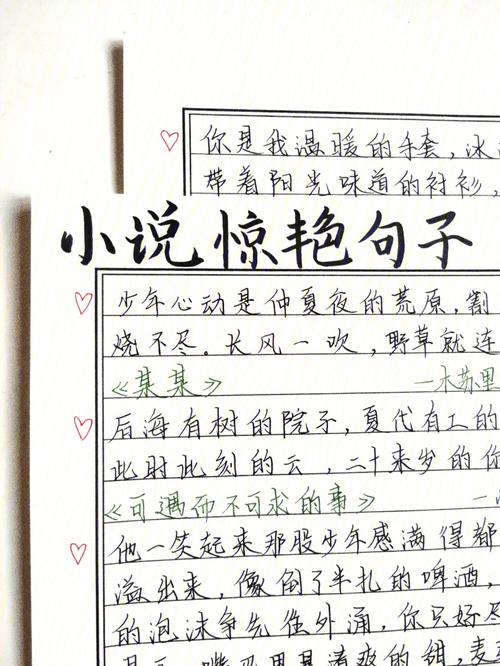 你是我温暖的手套，冰
带着阳光味道的衬衫，
小说惊艳句子
少年心动是仲夏夜的荒原，割
烧不尽。长风一吹，野草就连
《某某》 —木苏里
后海有树的院子，夏代有工的
此时此刻的云，二十来岁的你
《可遇而不可求的事》 —
他一笑起来那股少年感满得都
溢出来，像倒了半扎的啤酒，
的泡沫争先往外涌，你只好尽
的甜，麦